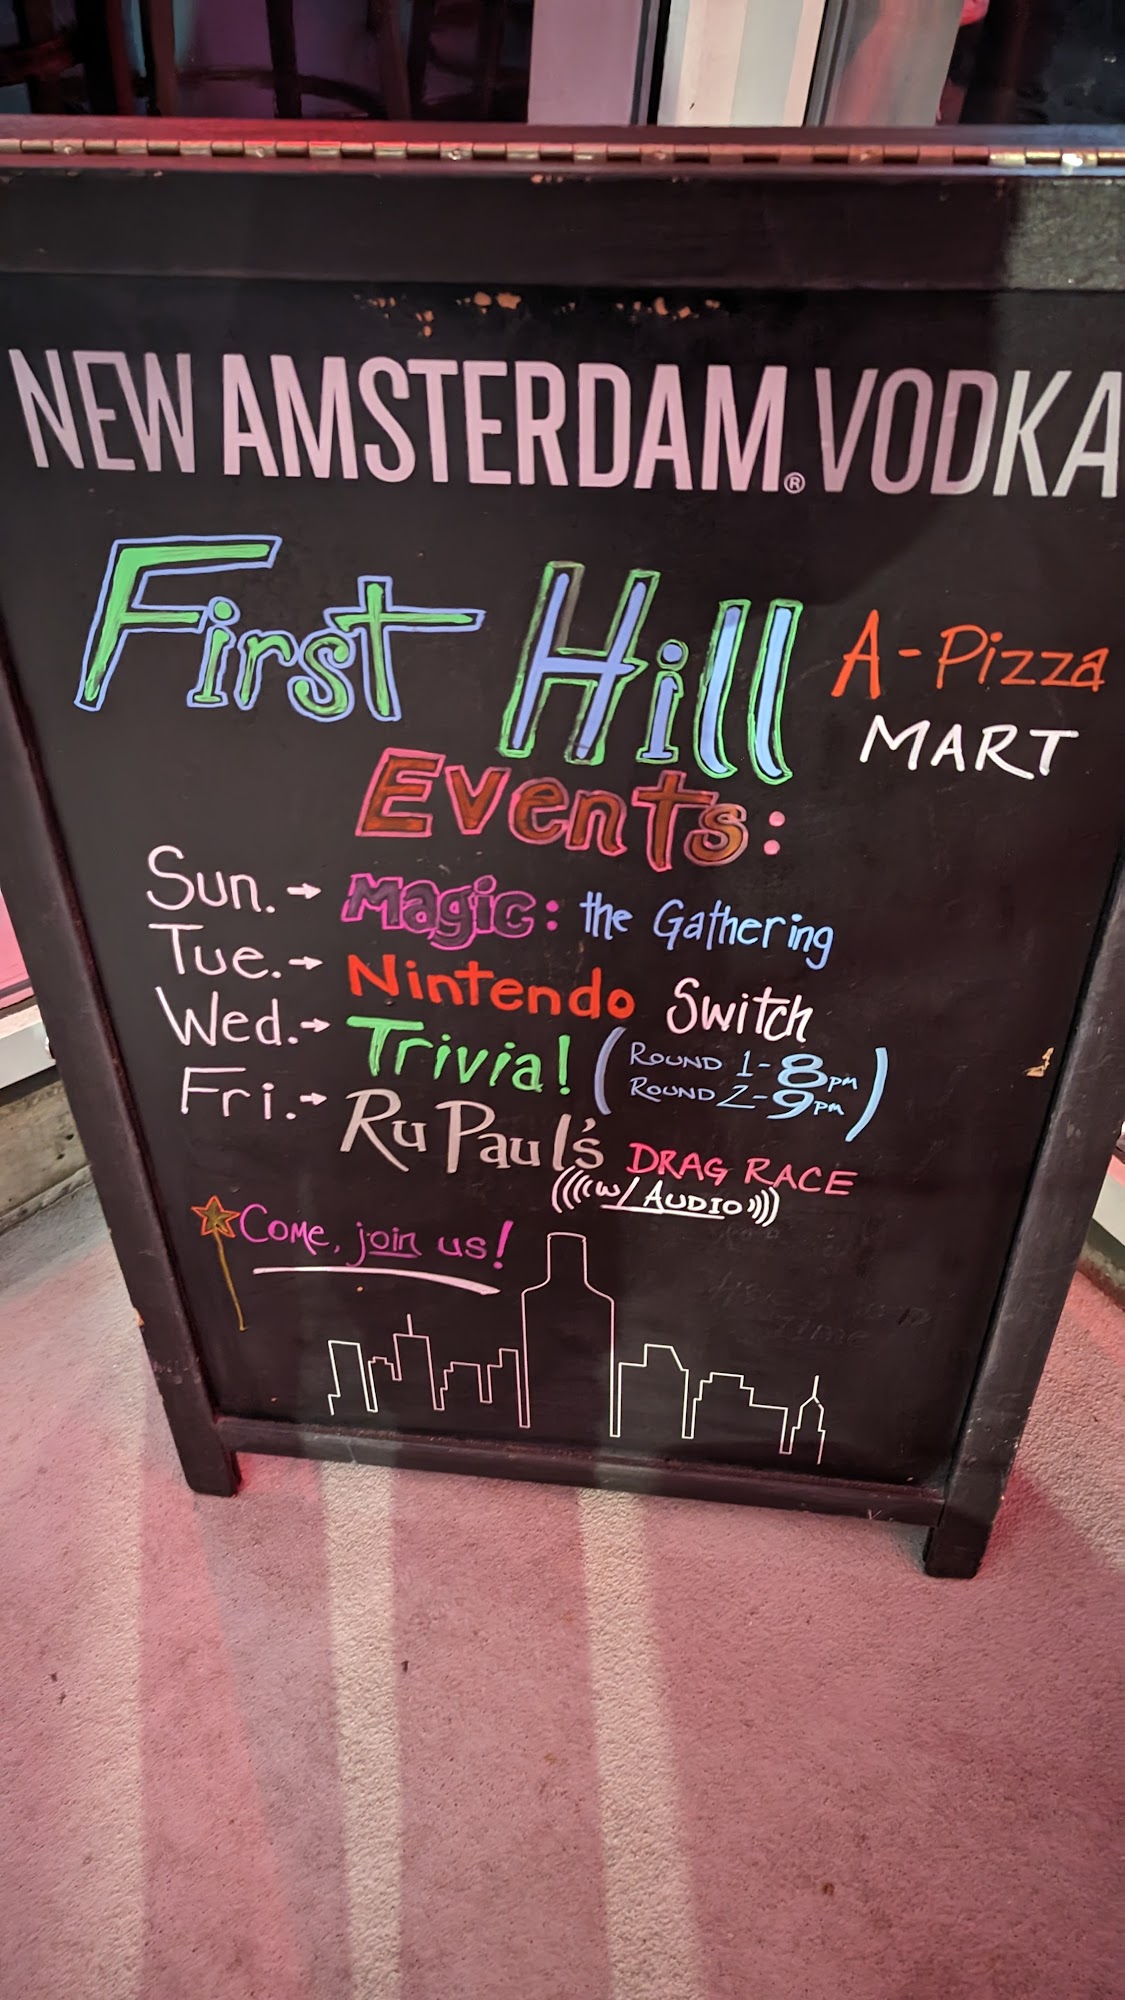 NEW AMSTERDAM® VODKA
First Hill A-Pizza
MART
Events:
Sun.→ Magic: the Gathering
Tue.→ Nintendo Switch
Wed.→ Trivia! (ROUND 1-8pm
ROUND 2-9pm)
Fri.→ RuPaul's DRAG RACE
(((w/ AUDIO)))
Come, join us!